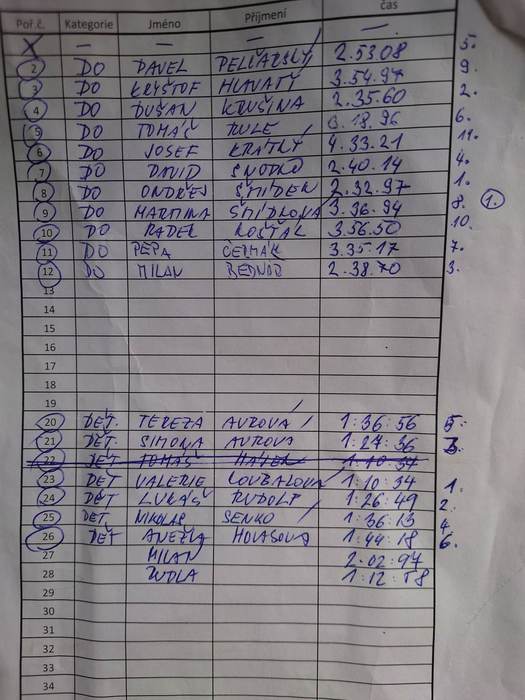 Poř.č. Kategorie Jméno Příjmení čas
X — — — — 5.
2 DO PAVEL 2.53.08 9.
3 DO KRYŠTOF HLAVATÝ 3.54.97 2.
4 DO DUŠAN KRUŠINA 2.35.60
5 DO TOMÁŠ RULE 3.18.96 6.
6 DO JOSEF KRÁTKÝ 4.33.21 11.
7 DO DAVID 2.40.14 4.
8 DO ONDŘEJ ŠMÍDER 2.32.97 1.
9 DO MARTINA ŠMÍDLOVÁ 3.36.94 8. 1.
10 DO RADEK KOŠŤÁL 3.56.50 10.
11 DO PEPA ČERMÁK 3.35.17 7.
12 DO MILAN BEDNÁŘ 2.38.70 3.
13
14
15
16
17
18
19
20 DĚT. TEREZA AUROVÁ 1:36:56 5.
21 DĚT. SIMONA AUROVÁ 1:27:36 3.
22 DĚT TOMÁŠ HÁJEK 1:10:34
23 DĚT VALERIE LOUBALOVÁ 1:10:34 1.
24 DĚT LUKÁŠ RUDOLF 1:26:49 2.
25 DĚT. MIKOLÁŠ SENKO 1:36:13 4.
26 DĚT ANEŽKA 1:44:18 6.
27 MILAN 2:02:97
28 1:12:58
29
30
31
32
33
34